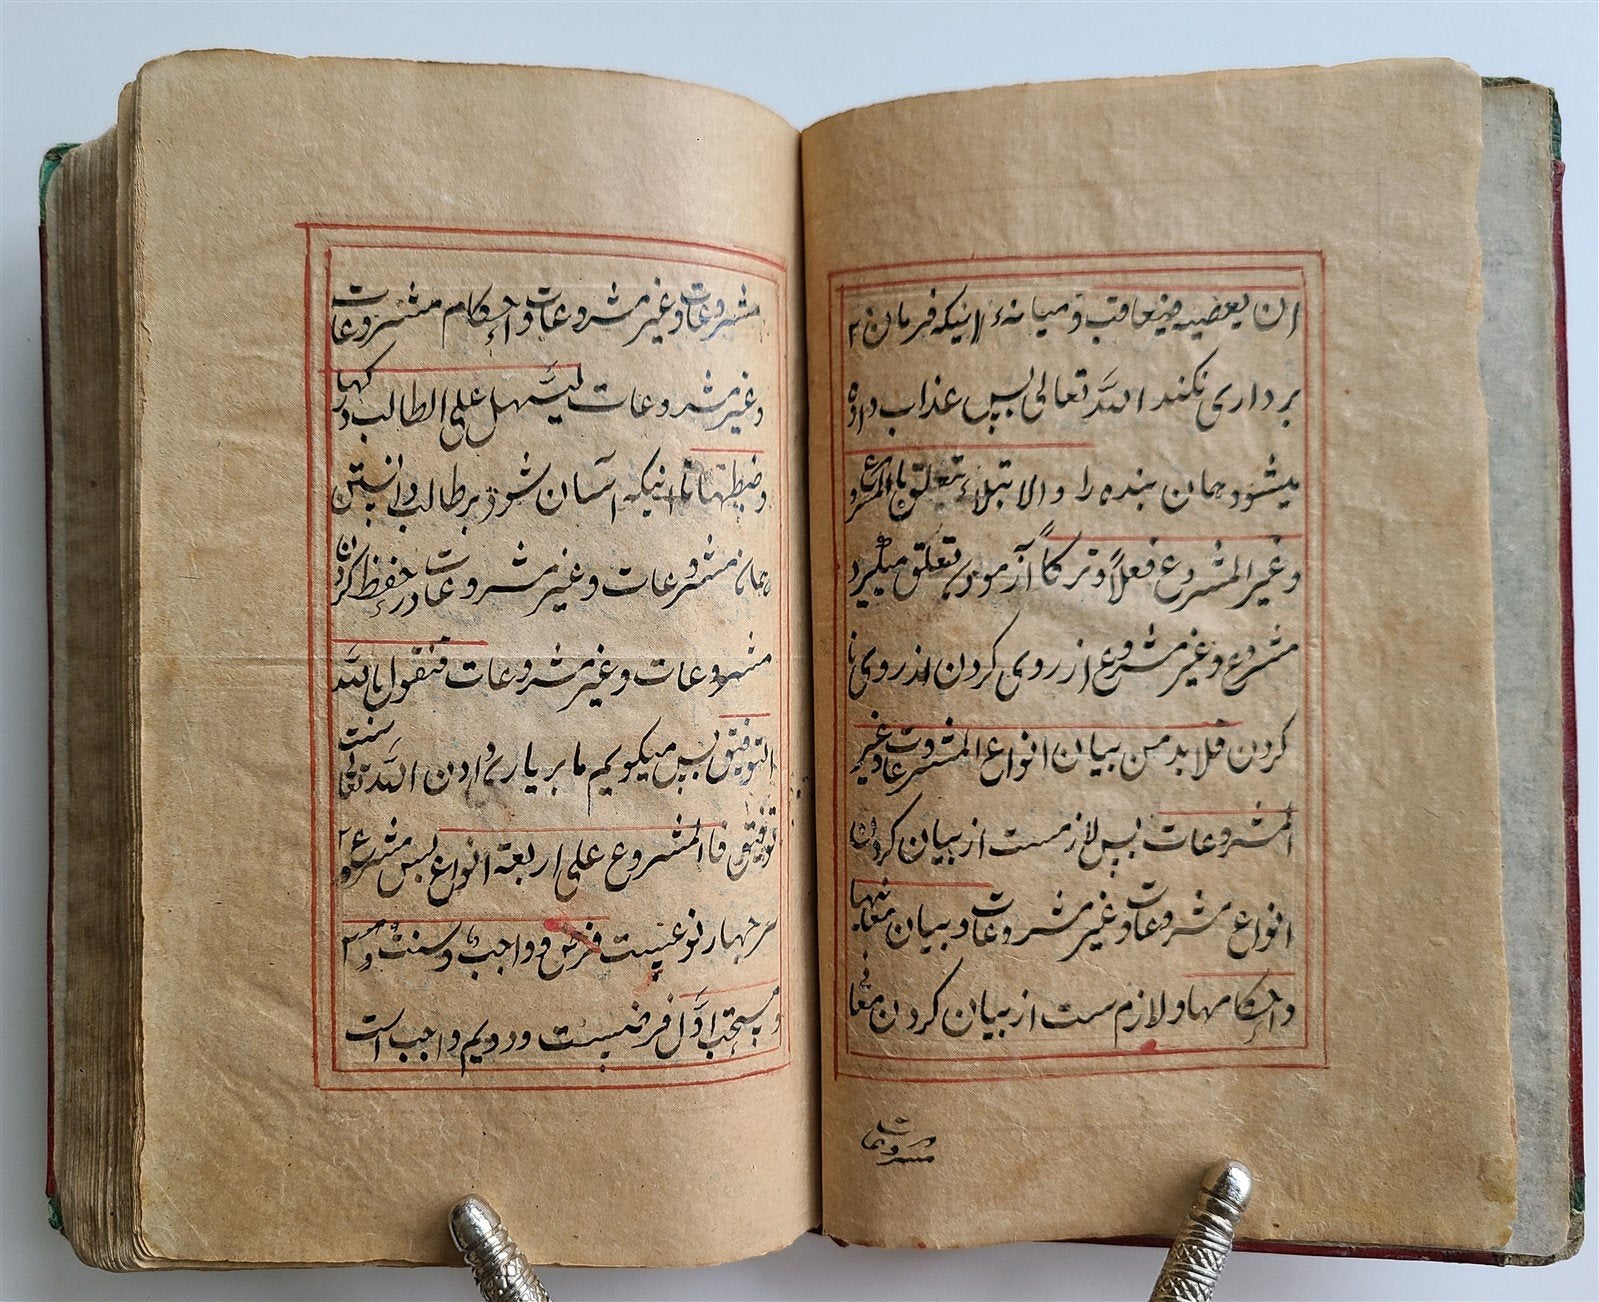 ان یعصیه فیعاقب و میانهٔ اینکه فرمان
برداری نکند الله تعالی پس عذاب داده
میشود همان بنده را والابتلاء یتعلق بالمشروع
وغیر المشروع فعلاً وترکاً آزمودن تعلق میگیرد
مشروع وغیر مشروع از روی کردن از روی نا
کردن فلا بد من بیان انواع المشروعات وغیر
المشروعات پس لازمست از بیان کردن
انواع مشروعات وغیر مشروعات و بیان معانیها
واحکامها و لازم ست از بیان کردن معانی
مشروعات
مشروعات وغیر مشروعات و احکام مشروعات
وغیر مشروعات لیسهل علی الطالب درکها
وضبطها تا اینکه آسان شود بر طالب دانستن
همان مشروعات وغیر مشروعات در حفظ کردن
مشروعات وغیر مشروعات فنقول بالله
التوفیق پس میکویم ما بر یاری دادن الله تعالی
توفیق فالمشروع علی اربعة انواع پس مشروع
بر چهار نوعیست فرض و واجب و سنت و
مستحب اول فرضیست و دویم واجب است
سنت